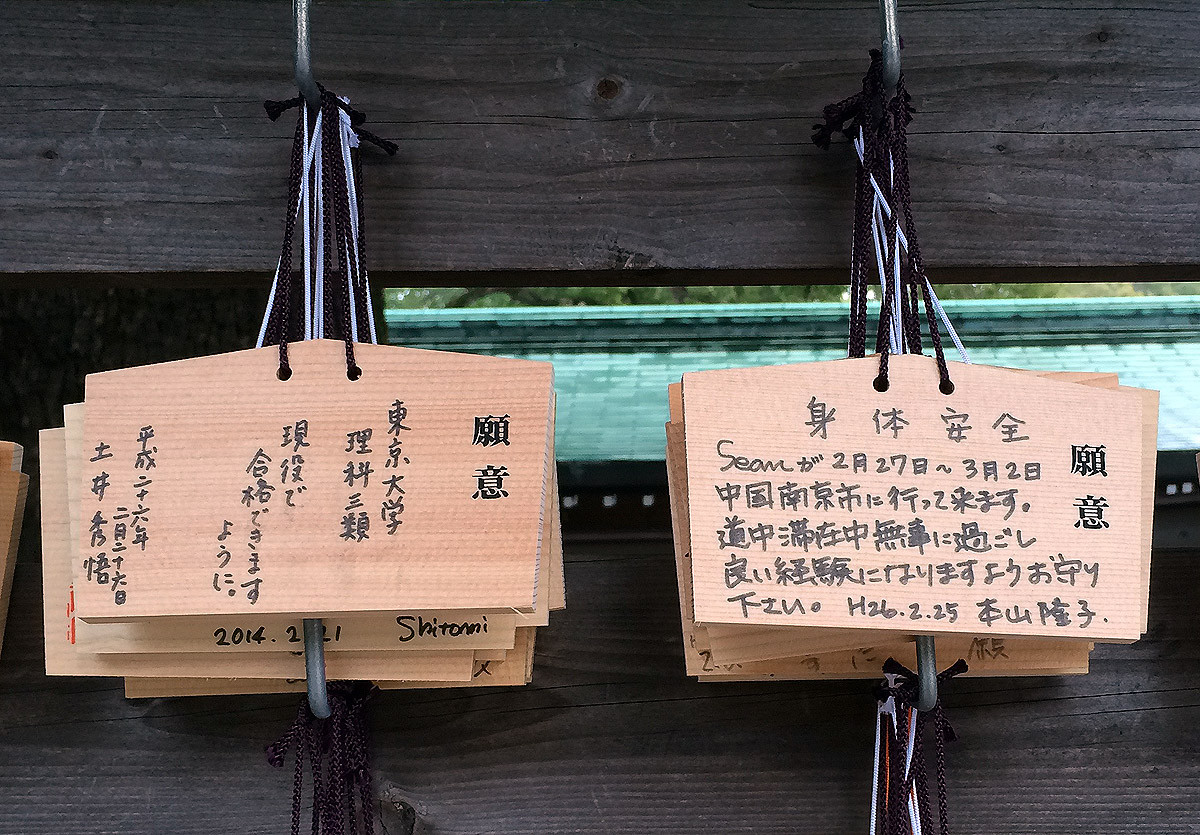 願意
東京大学
理科三類
現役で
合格できます
ように。
平成二十六年
二月二十六日
土井秀悟
2014. 2 21 Shitomi
願意
身体安全
Seanが2月27日～3月2日
中国南京市に行って来ます。
道中滞在中無事に過ごし
良い経験になりますようお守り
下さい。 H26.2.25 本山隆子.